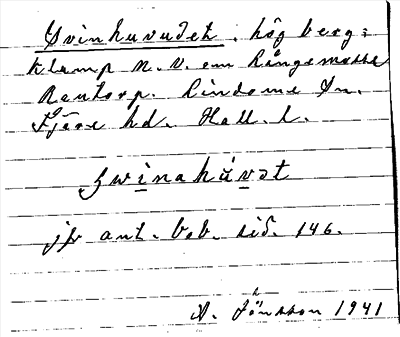 Svinhuvudet. hög berg=
klump N. V. om Långemosse
Rantorp. Lindome Sn.
Fjäre hd. Hall. l.
swinahuvət
jfr ant. bob. sid. 146.
A. Jönsson 1941